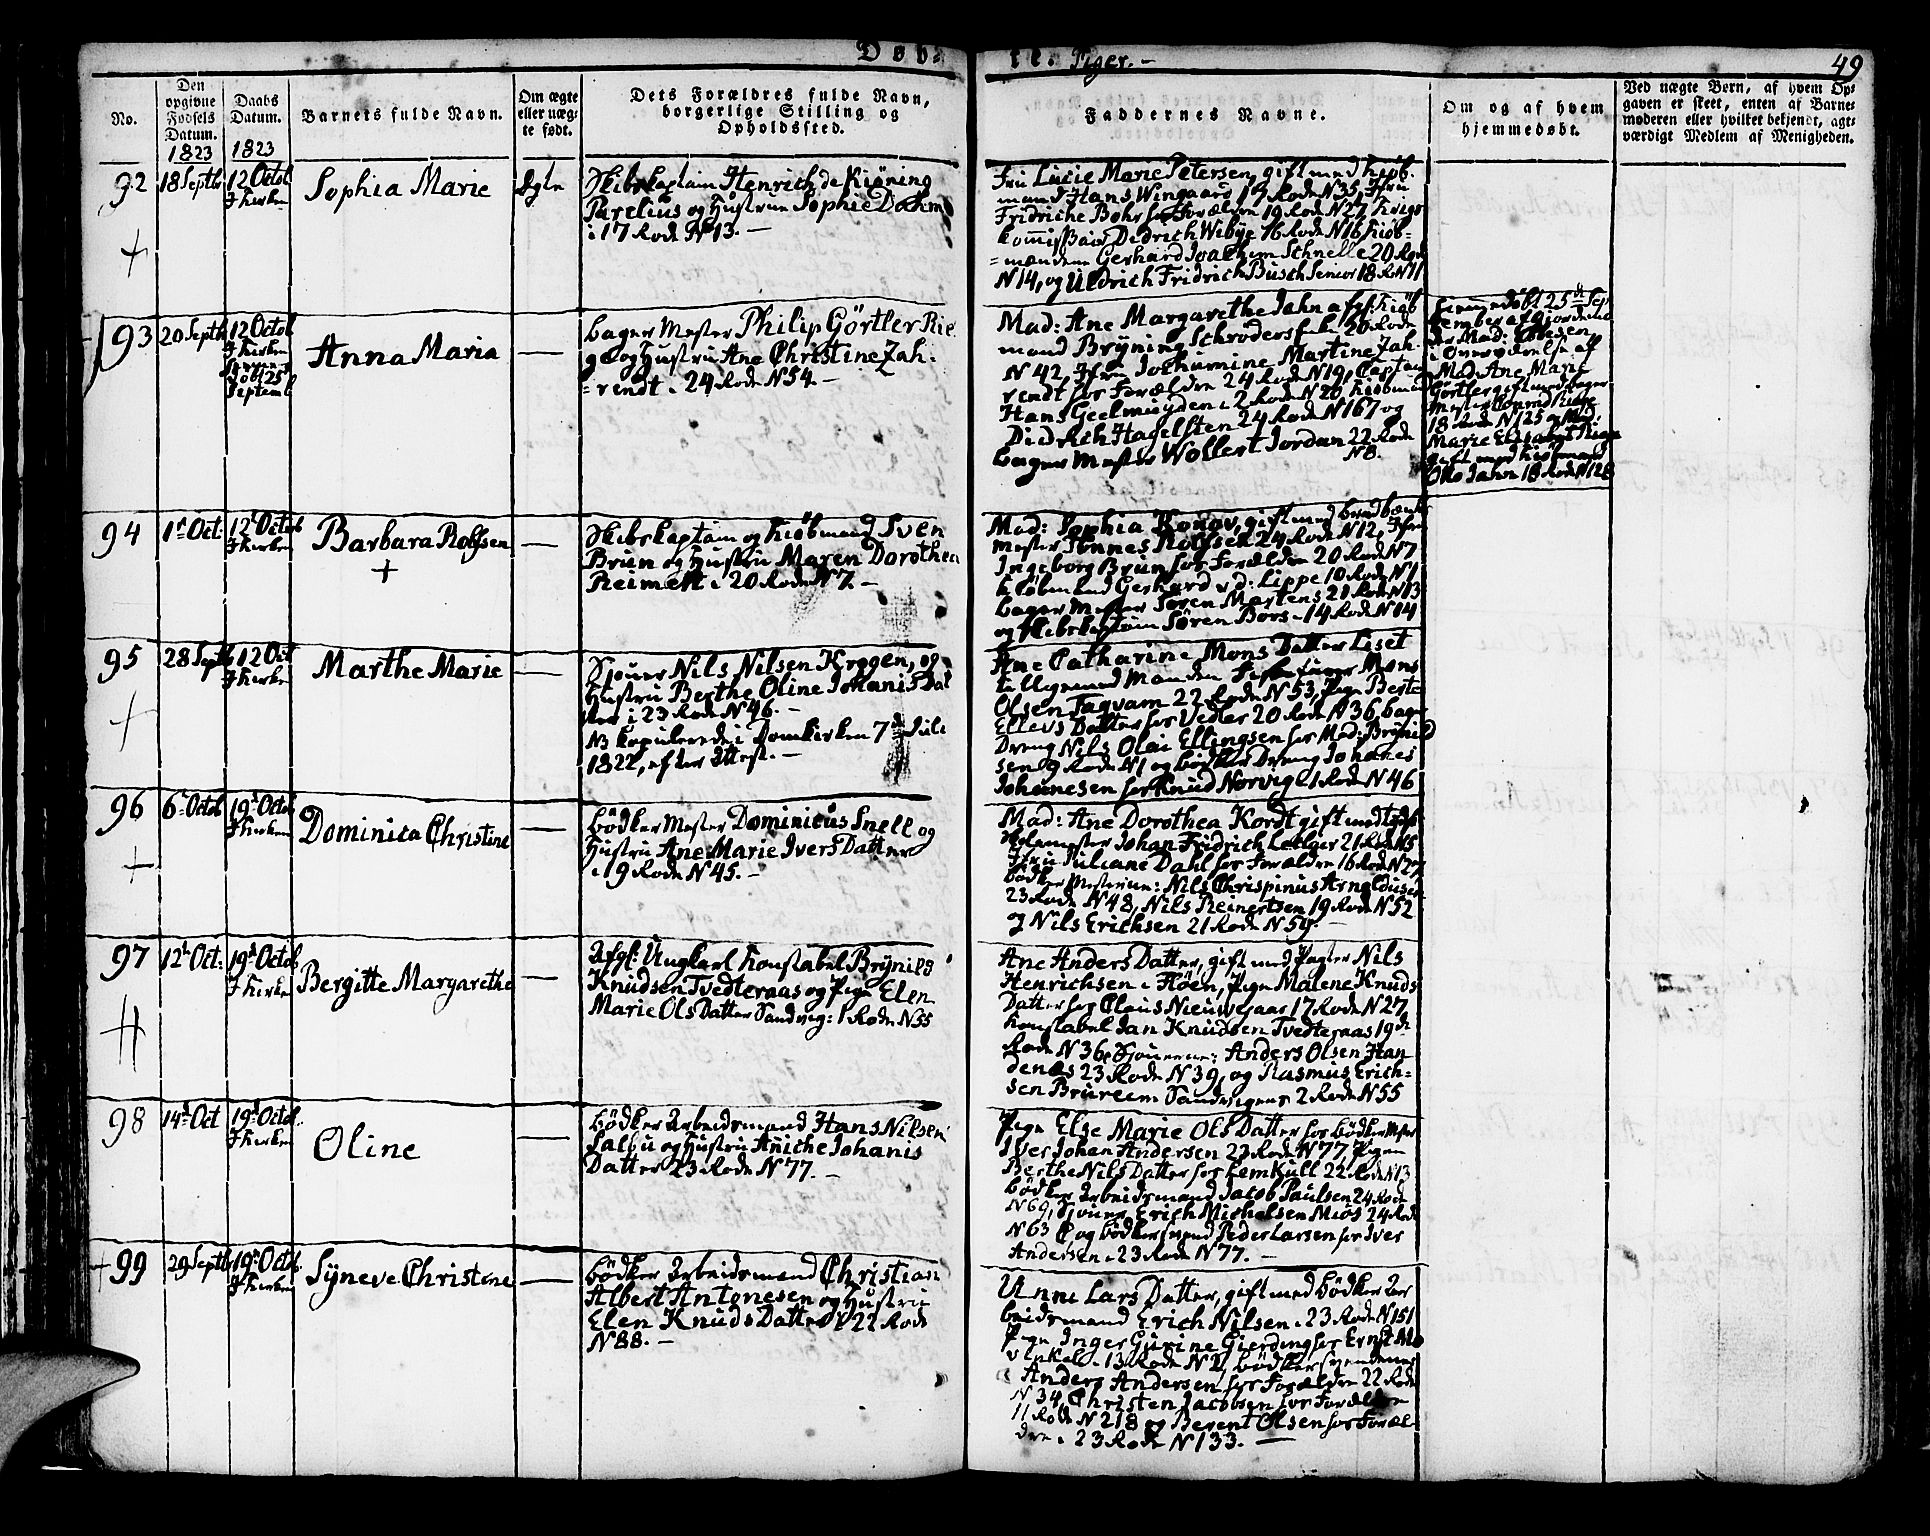 Døb-
te. Piger.-
49
No.
Den
opgivne
Fødsels
Datum.
1823
Daabs
Datum.
1823
Barnets fulde Navn.
Om ægte
eller uæg-
te født.
Dets Forældres fulde Navn,
borgerlige Stilling og
Opholdssted.
Faddernes Navne.
Om og af hvem
hjemmedøbt.
Ved uægte Børn, af hvem Op-
gaven er skeet, enten af Barne-
moderen eller hvilket bekjendt, agt-
værdigt Medlem af Menigheden.
92
18 Septb
12 Octob
I Kirken
Sophia Marie
Ægte
Skibskaptain Henrich de Kiøning
Parelius og Hustrue Sophie Dahm
i 17 Rode N 13. -
Fru Lucie Marie Petersen, gift med Kiøb-
mand Hans Wingaard 19 Rode N 35, Jfru
Fridriche Bohr for Forældre 19 Rode N 27, Krigs-
kommissair Didrich Wibye 16 Rode N 16 Kiøb-
mændene Gerhard Joachim Schnelle 20 Rode
N 14, og Uldrich Fridrich Busch Senior 18 Ro N 11
93
20 Septb
12 Octob
I Kirken
døbt 25
Septemb
Anna Maria
—
Bager Mester Philip Görtler Rie-
ge og Hustru Ane Christine Zah-
rendt i 24 Rode N 54. -
Mad: Ane Margarethe Jahn afgl. Kiøb
mand Brÿning Schrøders Enke 20 Rode
N 42, Jfru Jochumine Martine Zah-
rendt for Forældre 24 Rode N 19, Captain
Hans Geelmuyden i 2 Rode N 20, Kiøbmand
Didrich Hagelsten 24 Rode N 167 og
Bager Mester Wollert Jordan 22 Rode
N 8.
hiemmedøbt 25de Sep
tember af Giordemo
der Mad: Olsen
i Overværelse af
Mad. Ane Marie
Görtler gift med Bager
Mester Conrad Riege
18 Rode N 125 og Mad.
Marie Elisabet Riege
gift med Kiøbmand
Otto Jahn 18 Rode N 128
94
1st Oct:
12 Octob
I Kirken
Barbara Rolfsen
—
Skibskaptain og Kiøbmand Sven
Brun og Hustru Maren Dorothea
Reimers i 20 Rode N 7. -
Mad: Sophia Konow, gift med brødbænk
mester Tønnes Rolfsen 24 Rode N 12, Jfru
Ingeborg Brun for Forældre 20 Rode N 7
Kiøbmand Gerhard v. d: Lippe 10 Rode N 1
Bager Mester Søren Martens 21 Rode N 13
og Skibskaptain Søren Børs - 14 Rode N 14
95
28 Septb
12 Oct
I Kirken
Marthe Marie
—
Sjouer Nils Nilsen Kryger, og
Hustru Berthe Oline Johanis Dat
ter i 23 Rode N 46. -
NB kopulerede i Domkirken 7de Juli
1822, efter Attest. -
Ane Catharine Mons Datter Liset
Olsen Tagvam 22 Rode N 53, Pige Berte
Ellevs Datter for Vedler 20 Rode N 36, bager
Dreng Nils Olai Ellingsen for Mad: Brÿnild
sen 9 Rode N 1 og bødker Dreng Johanes
Johannesen for Knud Norvig 1 Rode N 46
96
6t Octob
19d Octob
I Kirken
Dominica Christine
—
bödker Mester Dominicus Snell og
Hustru Ane Marie Ivers Datter
i 19 Rode N 45. -
Mad: Ane Dorothea Kordt gift med
Skolemester Johan Fridrich Letzger 21 Rode N 5
Jfru Juliane Dahl for Forældre 16 Rode N 27,
bödker Mesterne: Nils Chrispinus Arnoldus
23 Rode N 48, Nils Reinertsen 19 Rode N 52
og Nils Erichsen 21 Rode N 59. -
97
12t Oct:
19d Octob
I Kirken
Bergitte Margarethe
—
Afgl: Ungkarl Konstabel Brÿnild
Knudsen Tvedteraas og Pige Elen
Marie Ols Datter Sandvig: 1 Rode N 55
Ane Anders Datter, gift med Pagter Nils
Henrichsen i Høen, Pige Malene Knuds
Datter for Claus Nieuwejaar 17 Rode N 27,
Konstabel Jan Knudsen Tvedteraas 19de
Rode N 36, Sjouerne: Anders Olsen Han
denæs 23 Rode N 39, og Rasmus Erich-
sen Brureem Sandvigens 2 Rode N 55
98
14d Oct
19d Octob.
I Kirken
Oline
—
bödker Arbeidsmand Hans Nilsen
Salbu og Hustru Aniche Johanis
Datter 23 Rode N 77. -
Pige Else Marie Ols Datter for bödker Mester
Iver Johan Andersen 23 Rode N 77, Pigen
Berthe Nils Datter for Lemkull 22 Rode N 13
bödker Arbeidsmand Jacob Paulsen 24 Rode
N 69, Sjouer Erich Michelsen Miøs 24 Rode
N 63 C og bödker svend Peder Larsen for Iver
Andersen i 23 Rode N 77. -
99
29 Septb
19d Octob.
I Kirken
Sÿneve Christine
—
bödker Arbeidsmand Christian
Albert Antonesen og Hustru
Elen Knuds Datter i 22 Rode
N 88. -
Unne Lars Datter, gift med bödker Ar
beidsmand Erich Nilsen i 23 Rode N 151
Pige Inger Gurine Gierding for Ernst Mo
vinkel i 13 Rode N 2, bödker svendene
Anders Andersen for Forældre 22 Rode
N 34, Christen Jacobsen for Forældre
11 Rode N 218 og Berent Olsen for Foræl
dre i 23 Rode N 133. —